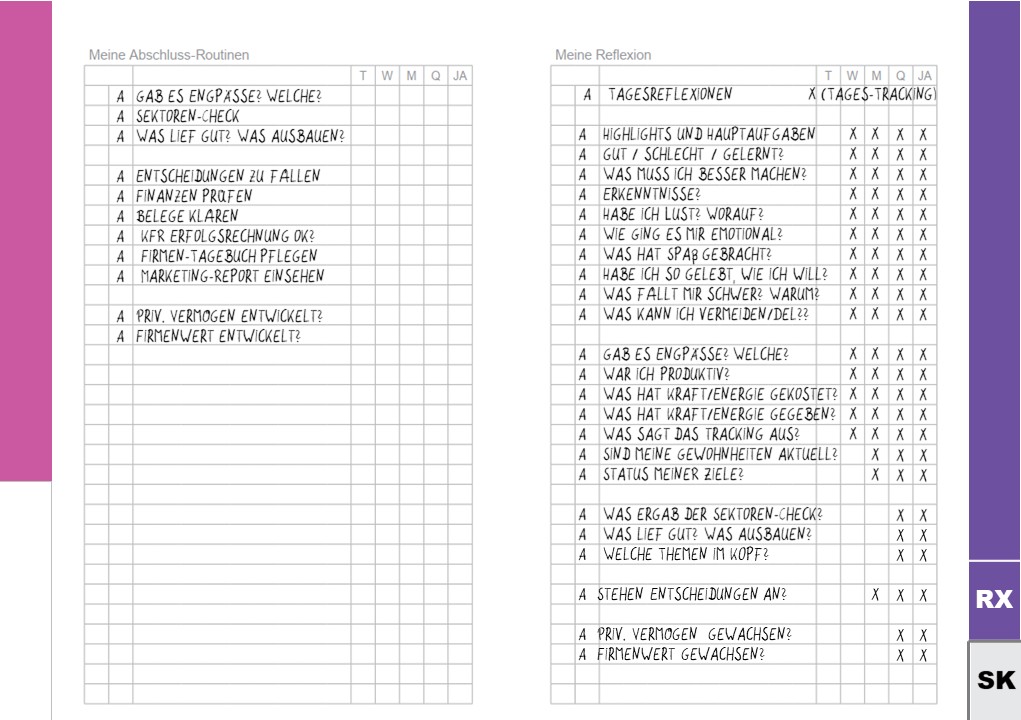 Meine Abschluss-Routinen
T W M Q JA
A GAB ES ENGPÄSSE? WELCHE?
A SEKTOREN-CHECK
A WAS LIEF GUT? WAS AUSBAUEN?
A ENTSCHEIDUNGEN ZU FÄLLEN
A FINANZEN PRÜFEN
A BELEGE KLÄREN
A KFR ERFOLGSRECHNUNG OK?
A FIRMEN-TAGEBUCH PFLEGEN
A MARKETING-REPORT EINSEHEN
A PRIV. VERMÖGEN ENTWICKELT?
A FIRMENWERT ENTWICKELT?
Meine Reflexion
T W M Q JA
A TAGESREFLEXIONEN X (TAGES-TRACKING)
A HIGHLIGHTS UND HAUPTAUFGABEN X X X X
A GUT / SCHLECHT / GELERNT? X X X X
A WAS MUSS ICH BESSER MACHEN? X X X X
A ERKENNTNISSE? X X X X
A HABE ICH LUST? WORAUF? X X X X
A WIE GING ES MIR EMOTIONAL? X X X X
A WAS HAT SPAß GEBRACHT? X X X X
A HABE ICH SO GELEBT, WIE ICH WILL? X X X X
A WAS FÄLLT MIR SCHWER? WARUM? X X X X
A WAS KANN ICH VERMEIDEN/DEL?? X X X X
A GAB ES ENGPÄSSE? WELCHE? X X X X
A WAR ICH PRODUKTIV? X X X X
A WAS HAT KRAFT/ENERGIE GEKOSTET? X X X X
A WAS HAT KRAFT/ENERGIE GEGEBEN? X X X X
A WAS SAGT DAS TRACKING AUS? X X X X
A SIND MEINE GEWOHNHEITEN AKTUELL? X X X
A STATUS MEINER ZIELE? X X X
A WAS ERGAB DER SEKTOREN-CHECK? X X
A WAS LIEF GUT? WAS AUSBAUEN? X X
A WELCHE THEMEN IM KOPF? X X
A STEHEN ENTSCHEIDUNGEN AN? X X X
A PRIV. VERMÖGEN GEWACHSEN? X X
A FIRMENWERT GEWACHSEN? X X
RX
SK